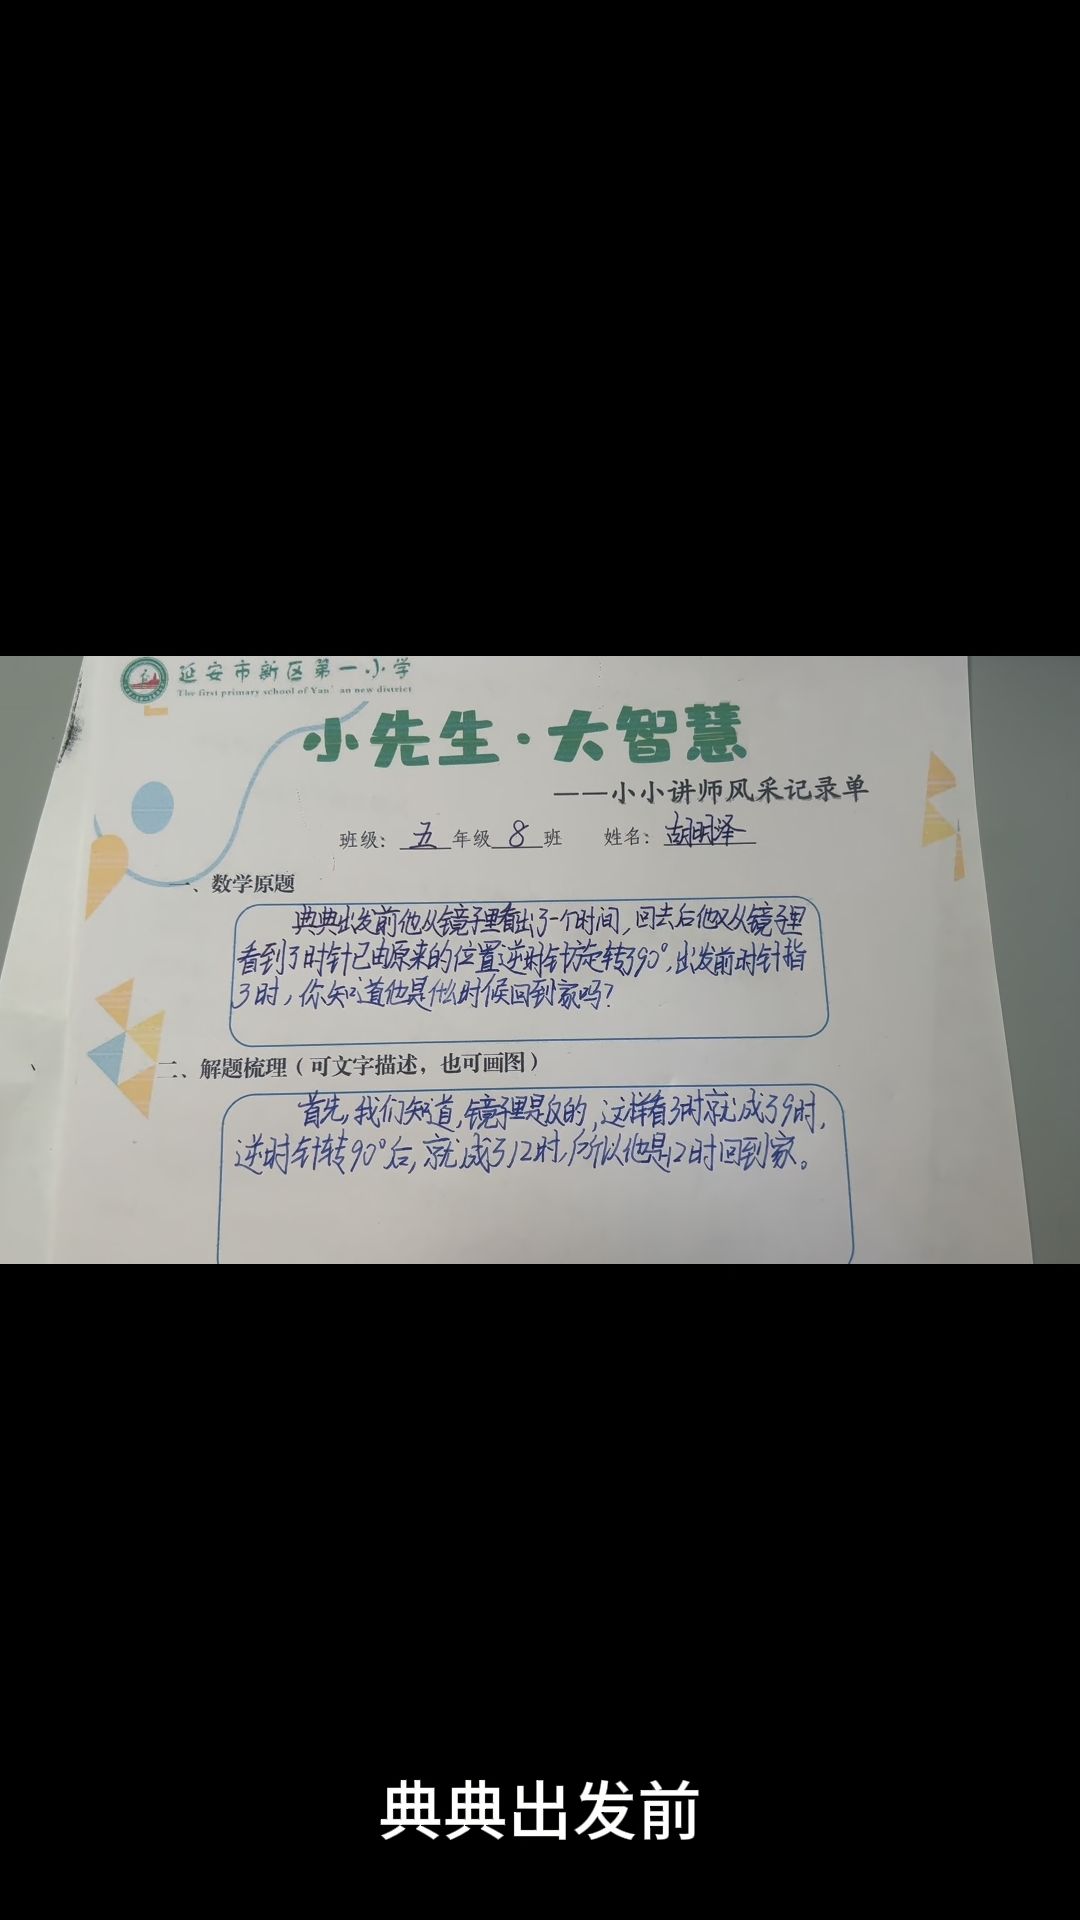 延安市新区第一小学
The first primary school of Yan'an new district
小先生·大智慧
——小小讲师风采记录单
班级：五年级8班 姓名：胡明泽
一、数学原题
典典出发前他从镜子里看出了一个时间，回去后他又从镜子里
看到了时针已由原来的位置逆时针旋转了90°，出发前时针指
3时，你知道他是什么时候回到家吗？
二、解题梳理（可文字描述，也可画图）
首先，我们知道，镜子里是反的，这样看3时就成了9时，
逆时针转90°后，就成了12时，所以他是12时回到家。
典典出发前